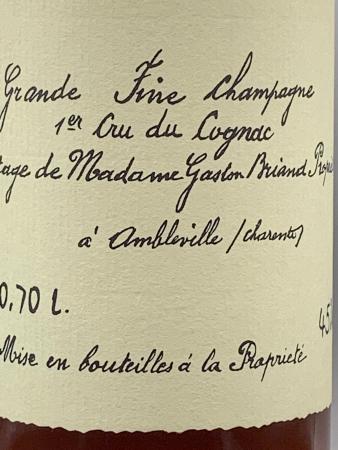 Grande Fine Champagne
1er Cru du Cognac
tage de Madame Gaston Briand Propri
à Ambleville (Charente)
0,70 L. 45%
Mise en bouteilles à la Propriété